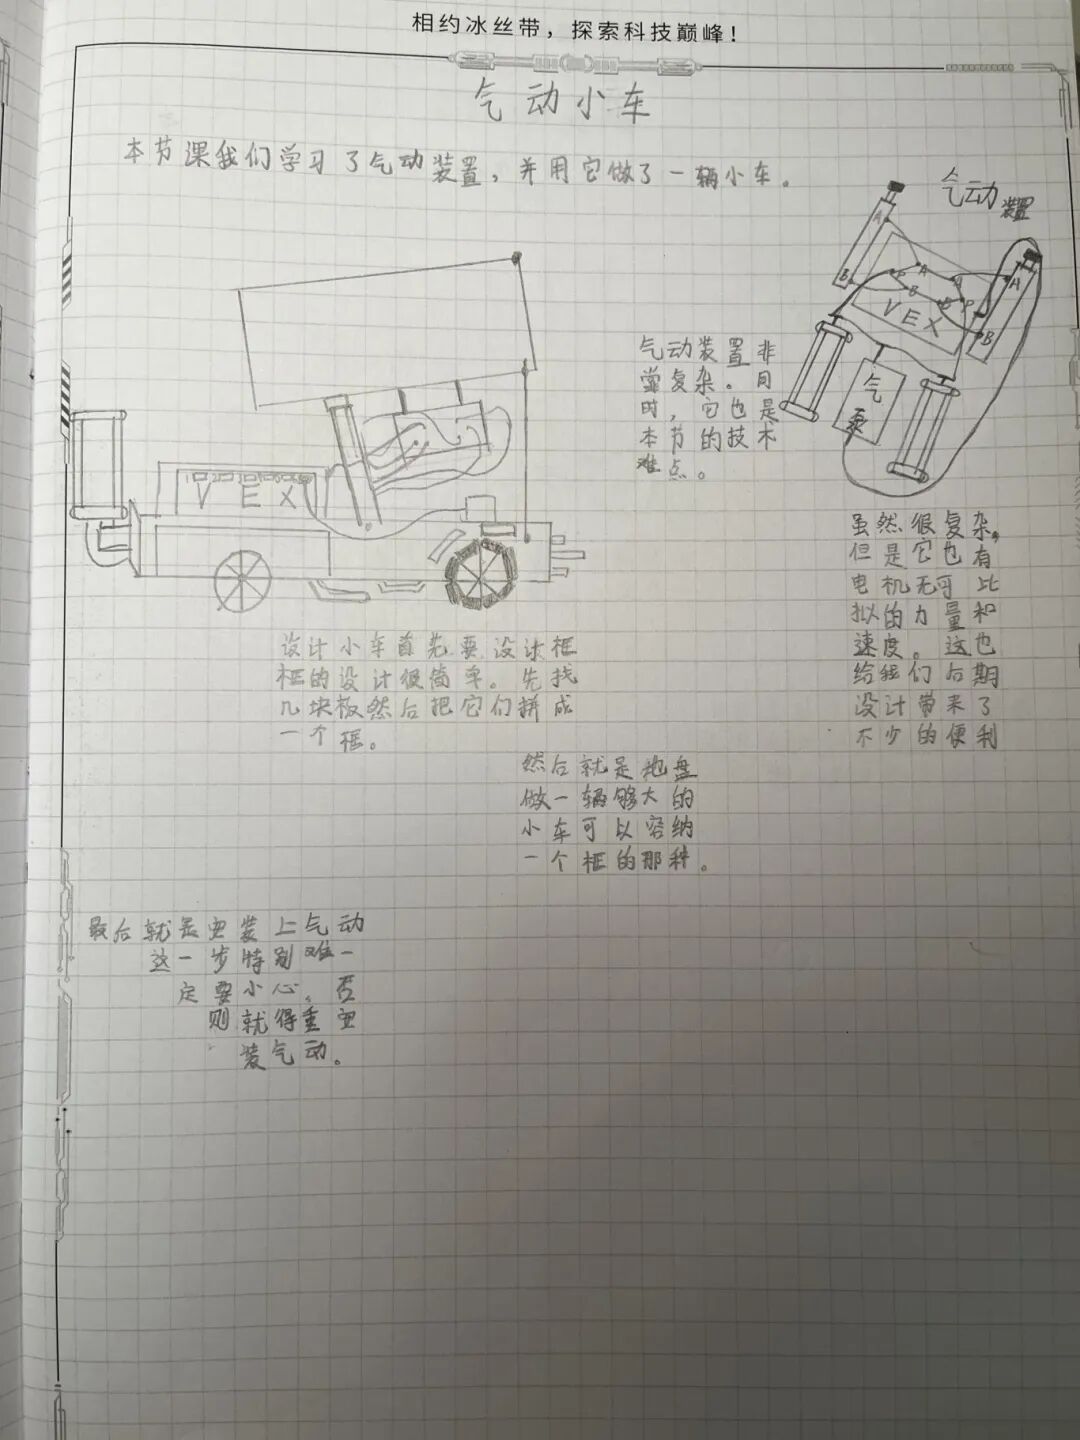 相约冰丝带，探索科技巅峰！
气动小车
本节课我们学习了气动装置，并用它做了一辆小车。
气动装置
A
A
B
P
A
A
B
B
P
B
VEX
气
泵
气动装置非
常复杂。同
时，它也是
本节的技术
难点。
VEX
虽然很复杂，
但是它也有
电机无可比
拟的力量和
速度。这也
给我们后期
设计带来了
不少的便利
设计小车首先要设计框
框的设计很简单。先找
几块板然后把它们拼成
一个框。
然后就是地盘
做一辆够大的
小车可以容纳
一个框的那种。
最后就是安装上气动
这一步特别难一
定要小心。否
则就得重安
装气动。